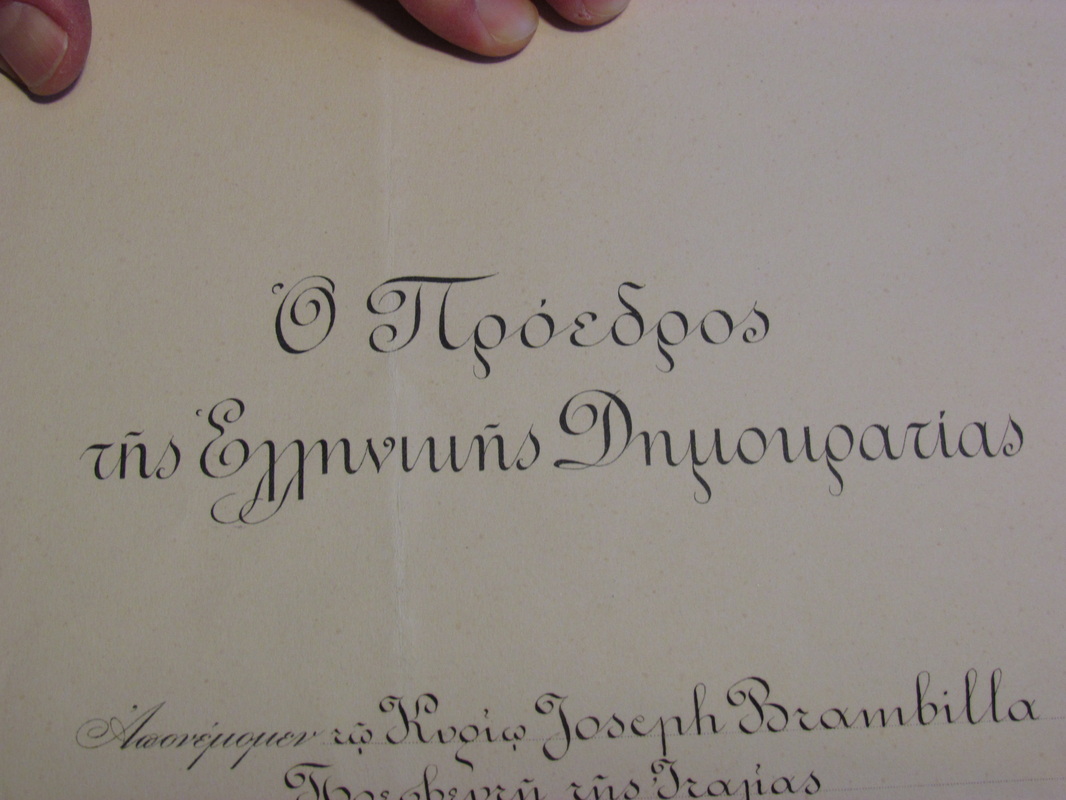 Ὁ Πρόεδρος
τῆς Ἑλληνικῆς Δημοκρατίας
Ἀπονέμομεν τῷ Κυρίῳ Joseph Brambilla
Πρεσβευτῇ τῆς Ἰταλίας